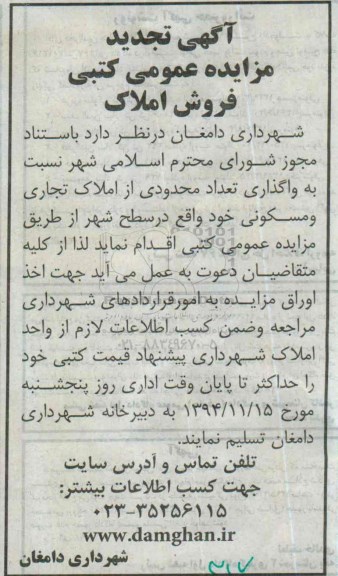 آگهی تجدید
مزایده عمومی کتبی
فروش املاک
شهرداری دامغان درنظر دارد باستناد
مجوز شورای محترم اسلامی شهر نسبت
به واگذاری تعداد محدودی از املاک تجاری
ومسکونی خود واقع درسطح شهر از طریق
مزایده عمومی کتبی اقدام نماید لذا از کلیه
متقاضیان دعوت به عمل می آید جهت اخذ
اوراق مزایده به امورقراردادهای شهرداری
مراجعه وضمن کسب اطلاعات لازم از واحد
املاک شهرداری پیشنهاد قیمت کتبی خود
را حداکثر تا پایان وقت اداری روز پنجشنبه
مورخ ۱۳۹۴/۱۱/۱۵ به دبیرخانه شهرداری
دامغان تسلیم نمایند.
تلفن تماس و آدرس سایت
جهت کسب اطلاعات بیشتر:
۰۲۳-۳۵۲۵۶۱۱۵
www.damghan.ir
شهرداری دامغان